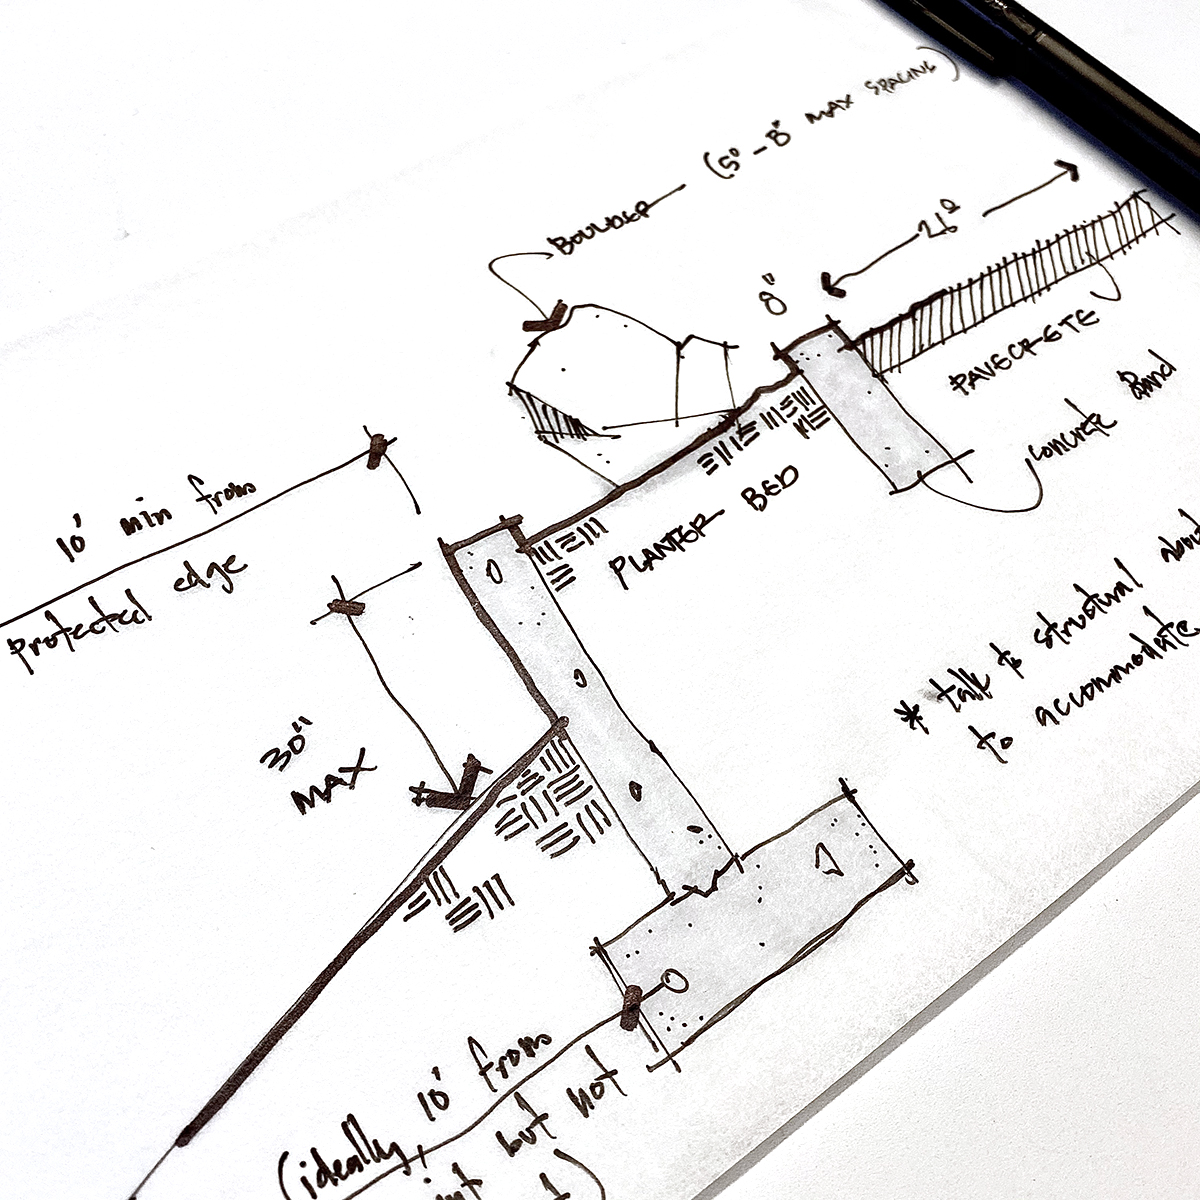 BOULDER (5" - 8" MAX SPACING)
8"
PAVECRETE
Concrete Band
PLANTER BED
10' min from
Protected edge
30"
MAX
* talk to structural about
to accommodate
(ideally, 10' from
but not